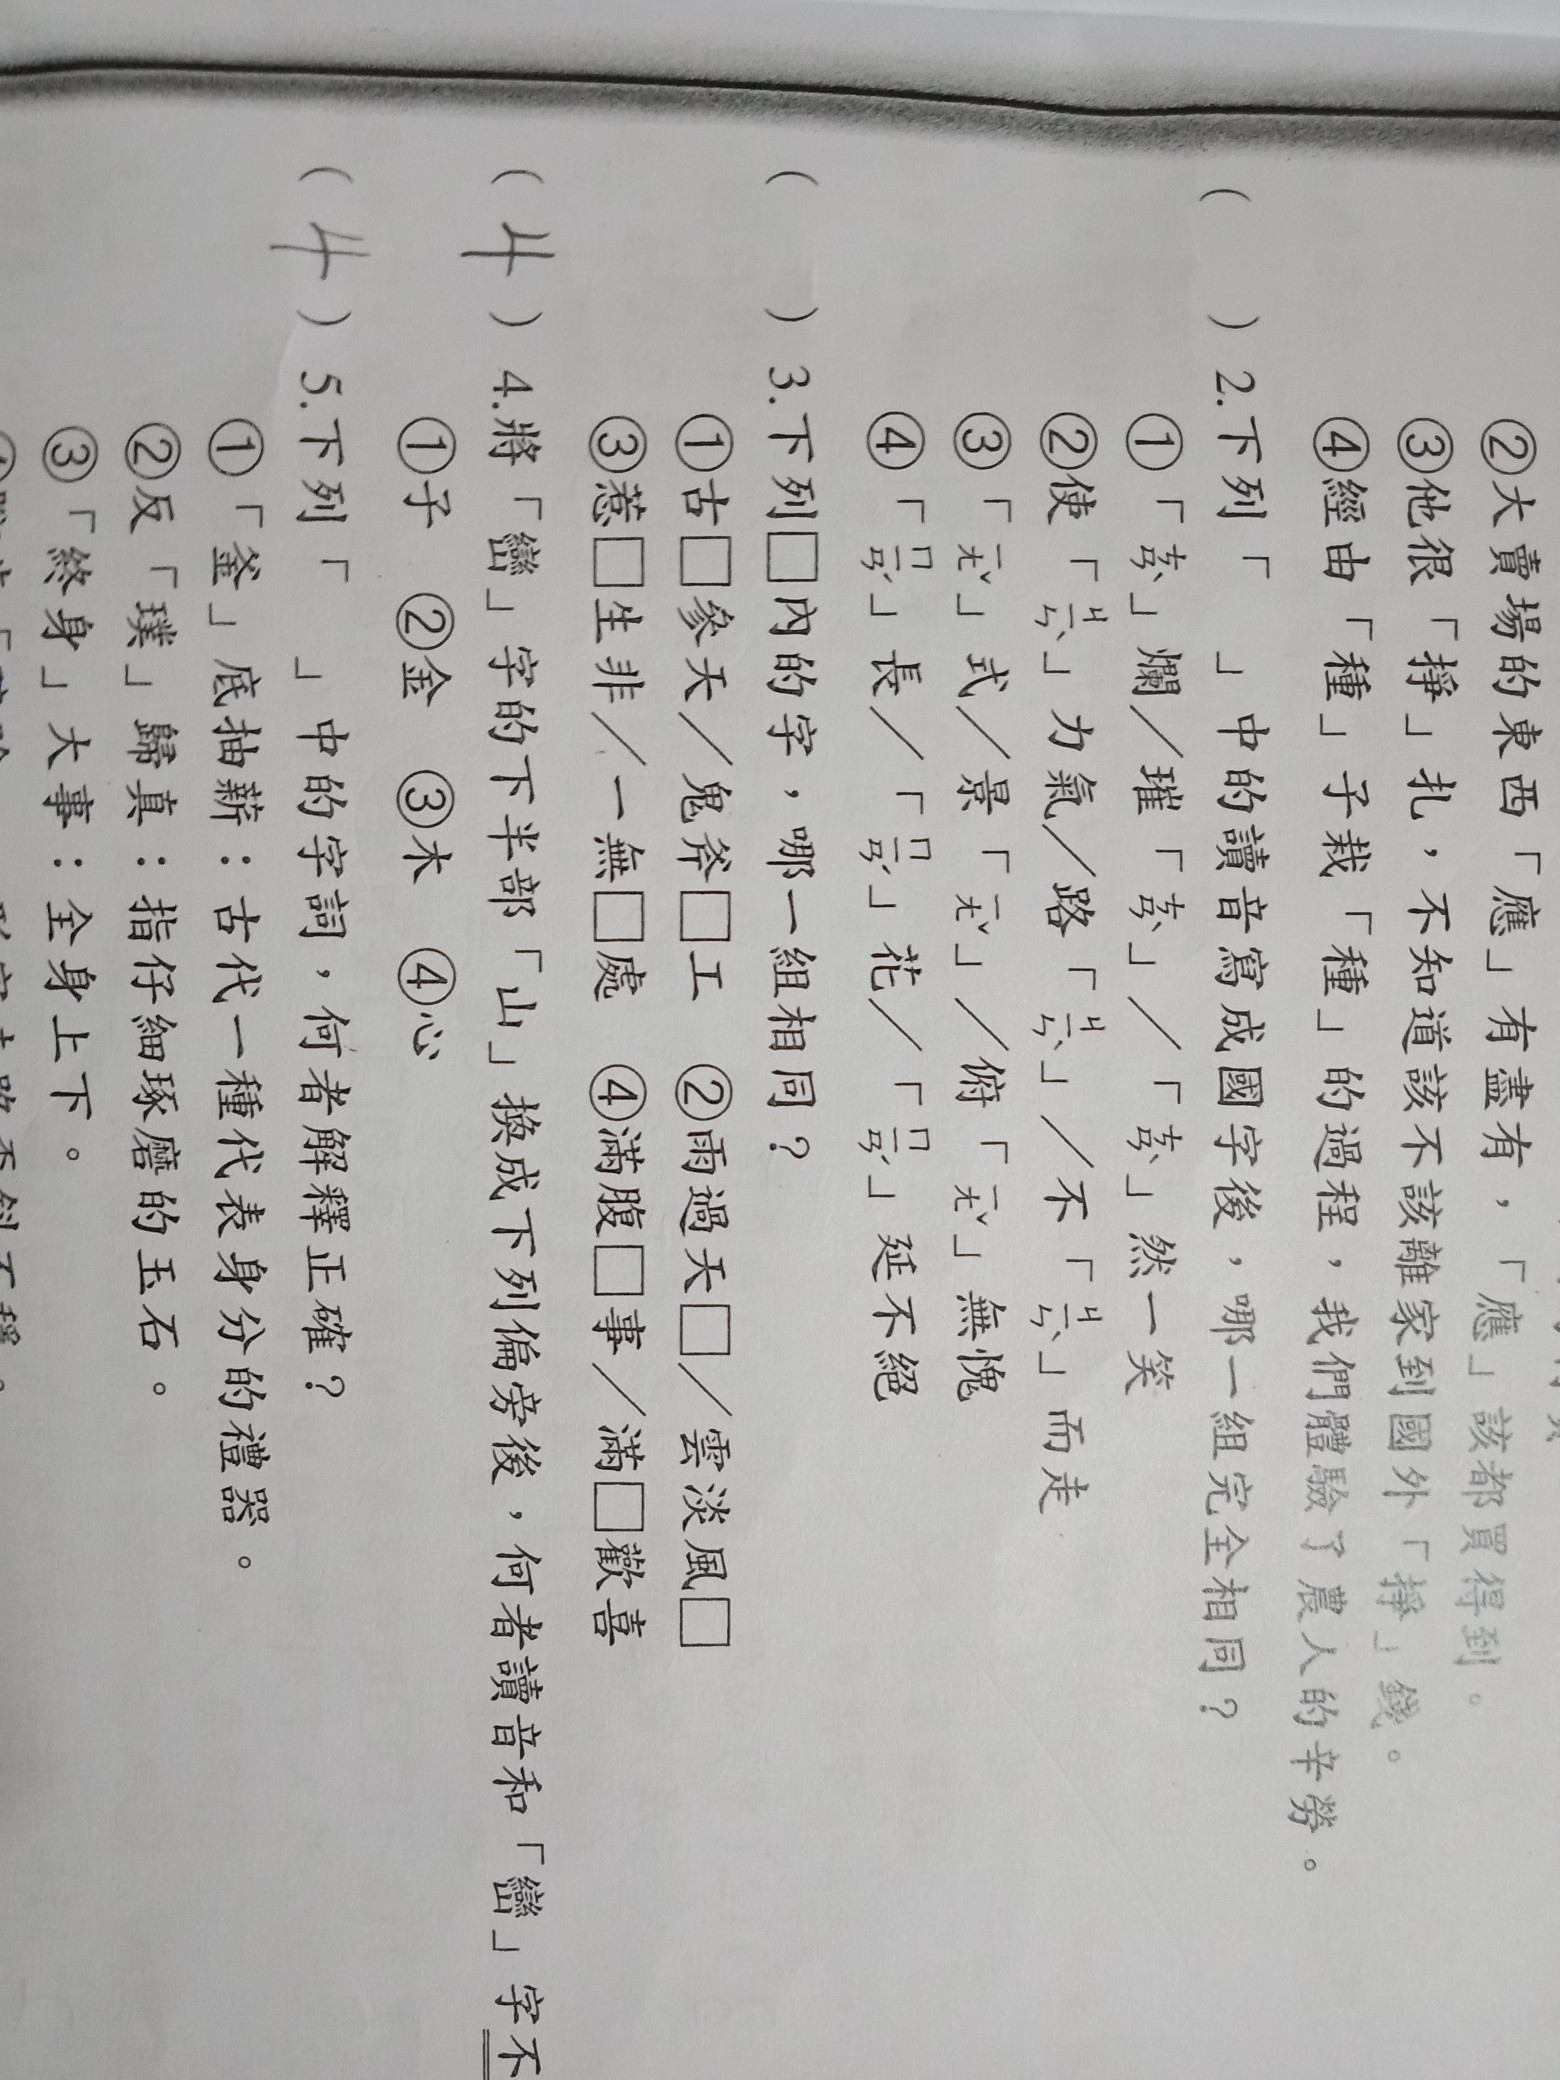 ②大賣場的東西「應」有盡有，「應」該都買得到。
③他很「掙」扎，不知道該不該離家到國外「掙」錢。
④經由「種」子栽「種」的過程，我們體驗了農人的辛勞。
(　　)2.下列「　」中的讀音寫成國字後，哪一組完全相同？
①「ㄘㄢˋ」爛／璀「ㄘㄢˋ」／「ㄘㄢˋ」然一笑
②使「ㄐㄧㄣˋ」力氣／路「ㄐㄧㄣˋ」／不「ㄐㄧㄣˋ」而走
③「ㄧㄤˇ」式／景「ㄧㄤˇ」／俯「ㄧㄤˇ」無愧
④「ㄇㄧㄢˊ」長／「ㄇㄧㄢˊ」花／「ㄇㄧㄢˊ」延不絕
(　　)3.下列□內的字，哪一組相同？
①古□參天／鬼斧□工　②雨過天□／雲淡風□
③惹□生非／一無□處　④滿腹□事／滿□歡喜
( 4 )4.將「巒」字的下半部「山」換成下列偏旁後，何者讀音和「巒」字不
①子　②金　③木　④心
( 4 )5.下列「　」中的字詞，何者解釋正確？
①「釜」底抽薪：古代一種代表身分的禮器。
②反「璞」歸真：指仔細琢磨的玉石。
③「終身」大事：全身上下。